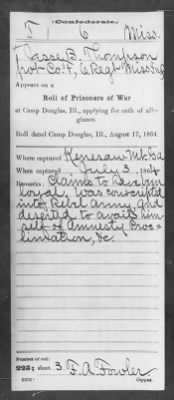 (Confederate.)
T | 6 | Miss.
Jesse B. Thompson
Pvt Co. F, 6 Regt Miss Inf
Appears on a
Roll of Prisoners of War
at Camp Douglas, Ill., applying for oath of alle-
giance.
Roll dated Camp Douglas, Ill., August 17, 1864.
Where captured Kenesaw Mt. Ga
When captured July 3, 1864
Remarks: Claims to have been
loyal, was conscripted
into Rebel Army, and
deserted to avail him
self of Amnesty Proc-
lamation, &c
Number of roll:
225; sheet 3 F. A. Fowler
Copyist.